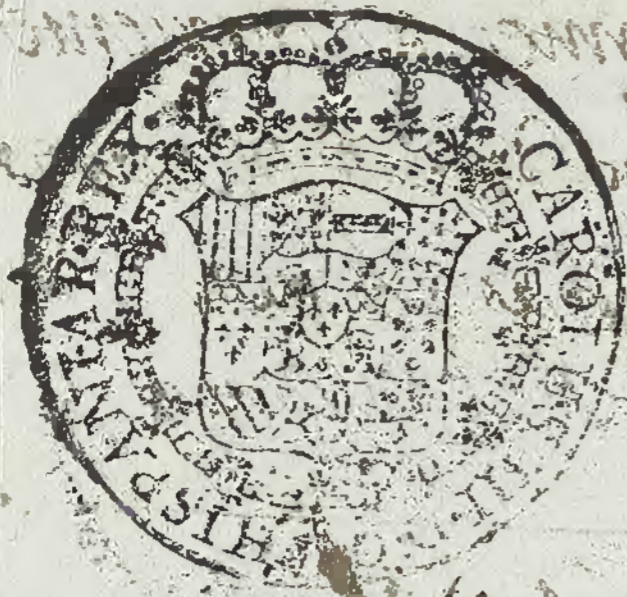 CAROLUS HISPANIAR. REX